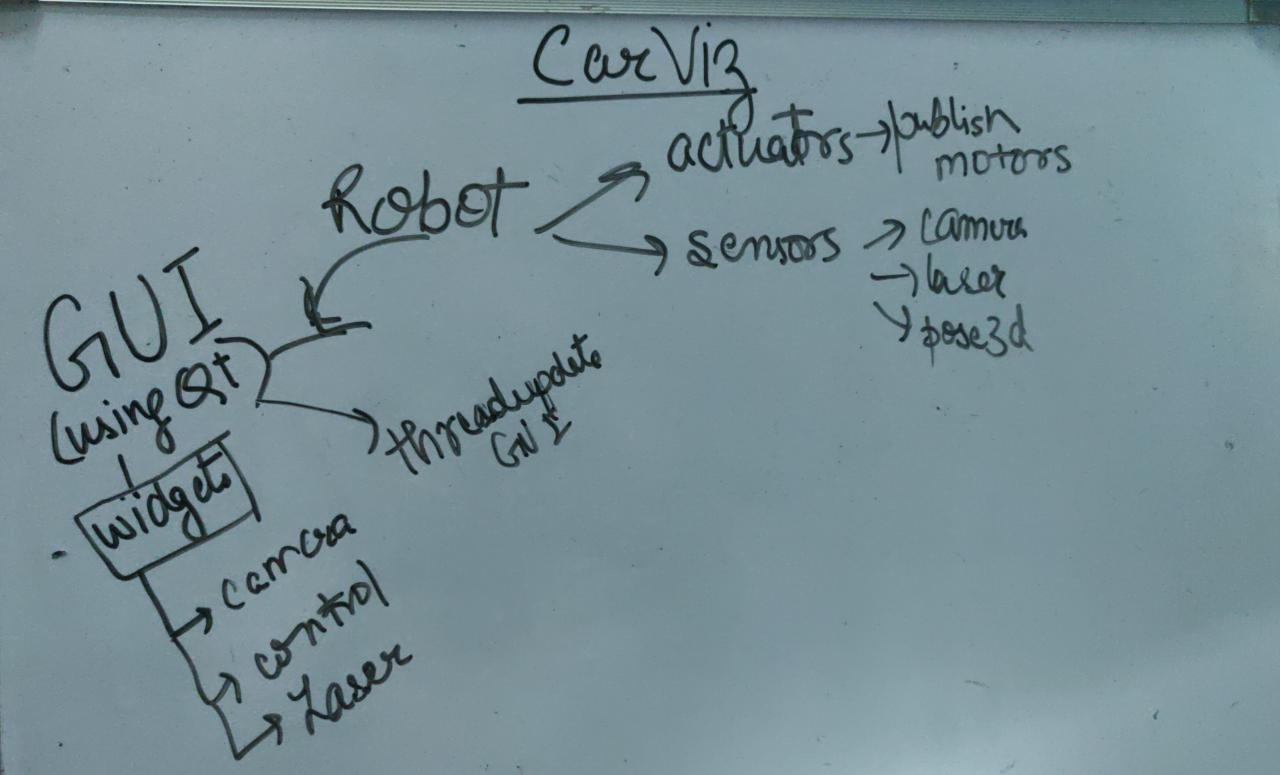 CarViz
Robot
actuators → publish
motors
sensors → camera
→ laser
→ pose3d
GUI
(using Qt
widgets
threadupdate
GUI
camera
control
Laser